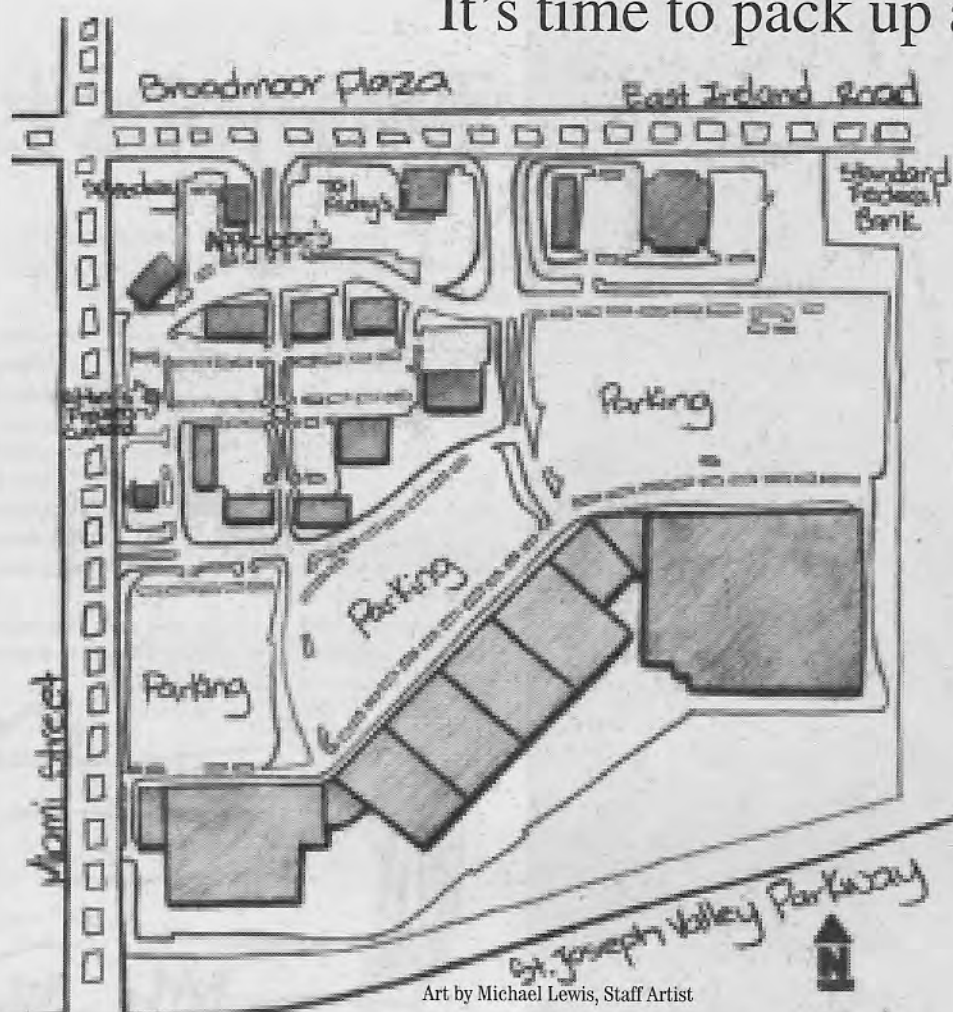 It's time to pack up a
Broadmoor Plaza
East Ireland Road
Standard
Federal
Bank
TGI
Friday's
Applebee's
Parking
Parking
Parking
Miami Street
St. Joseph Valley Parkway
N
Art by Michael Lewis, Staff Artist